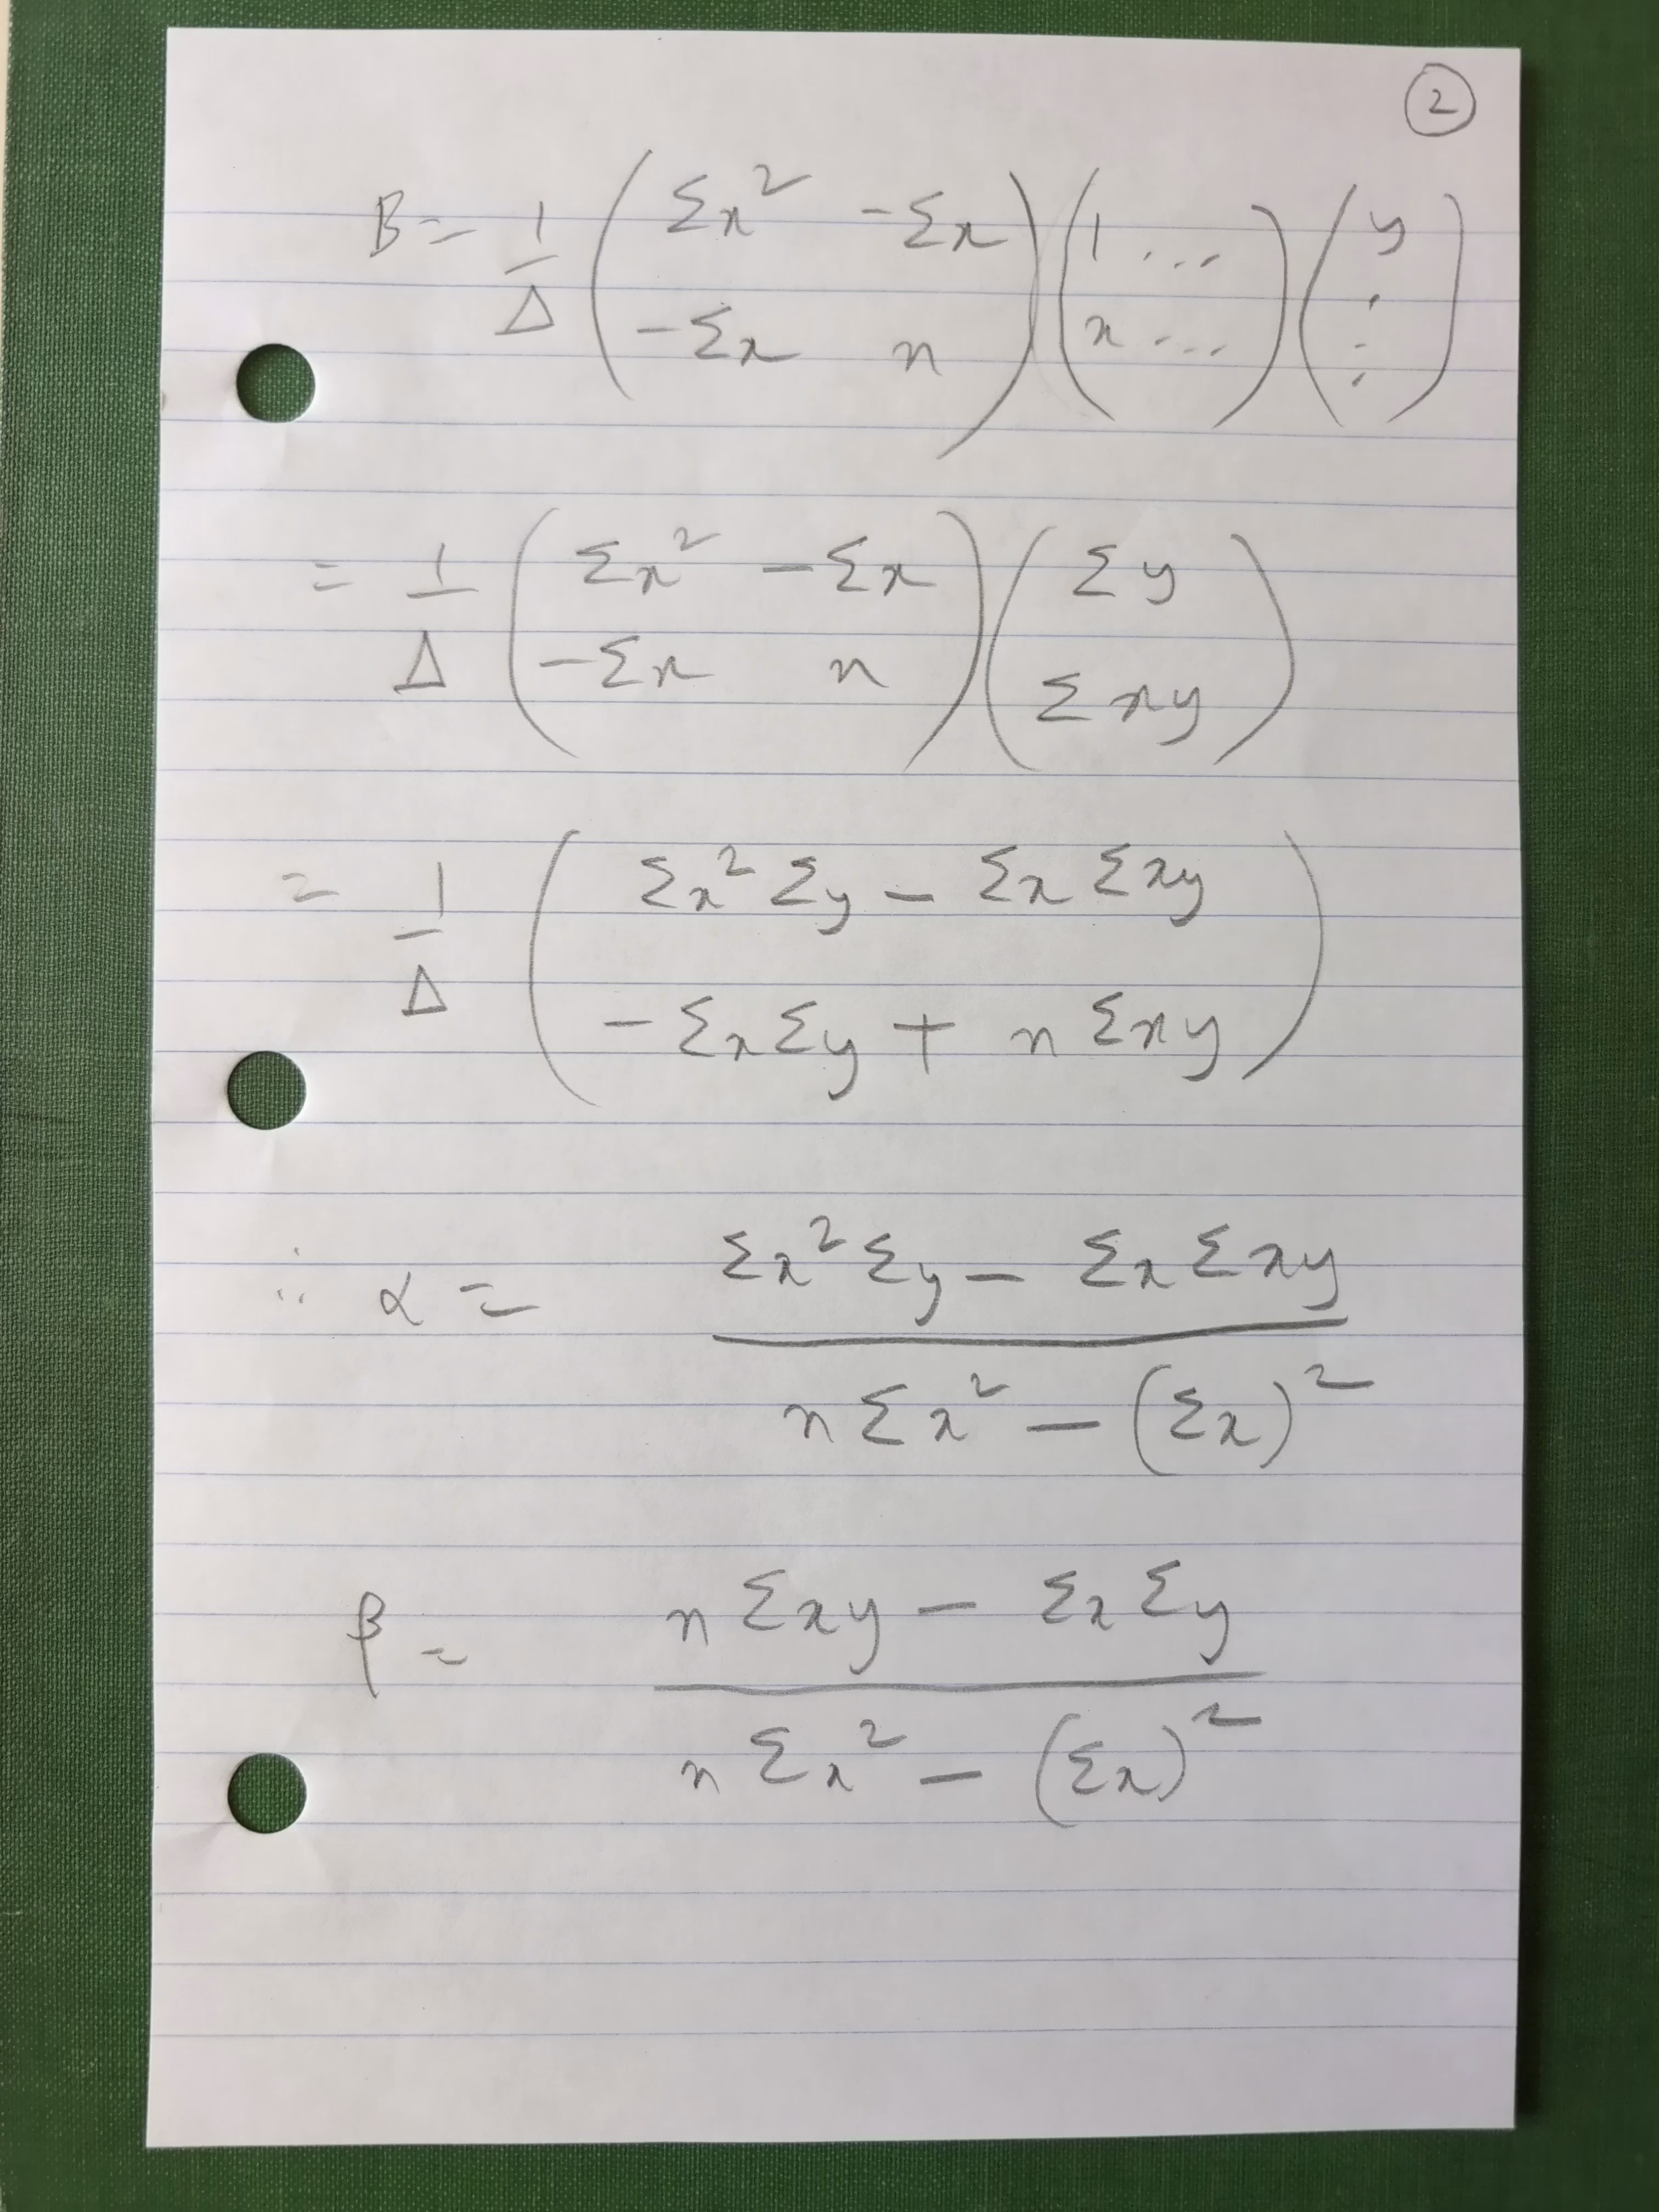 ②
B = 1/Δ ( Σx² -Σx ; -Σx n ) ( 1 ... ; x ... ) ( y ⋮ )
= 1/Δ ( Σx² -Σx ; -Σx n ) ( Σy ; Σxy )
= 1/Δ ( Σx² Σy - Σx Σxy ; -Σx Σy + n Σxy )
∴ α = (Σx² Σy - Σx Σxy) / (n Σx² - (Σx)²)
β = (n Σxy - Σx Σy) / (n Σx² - (Σx)²)